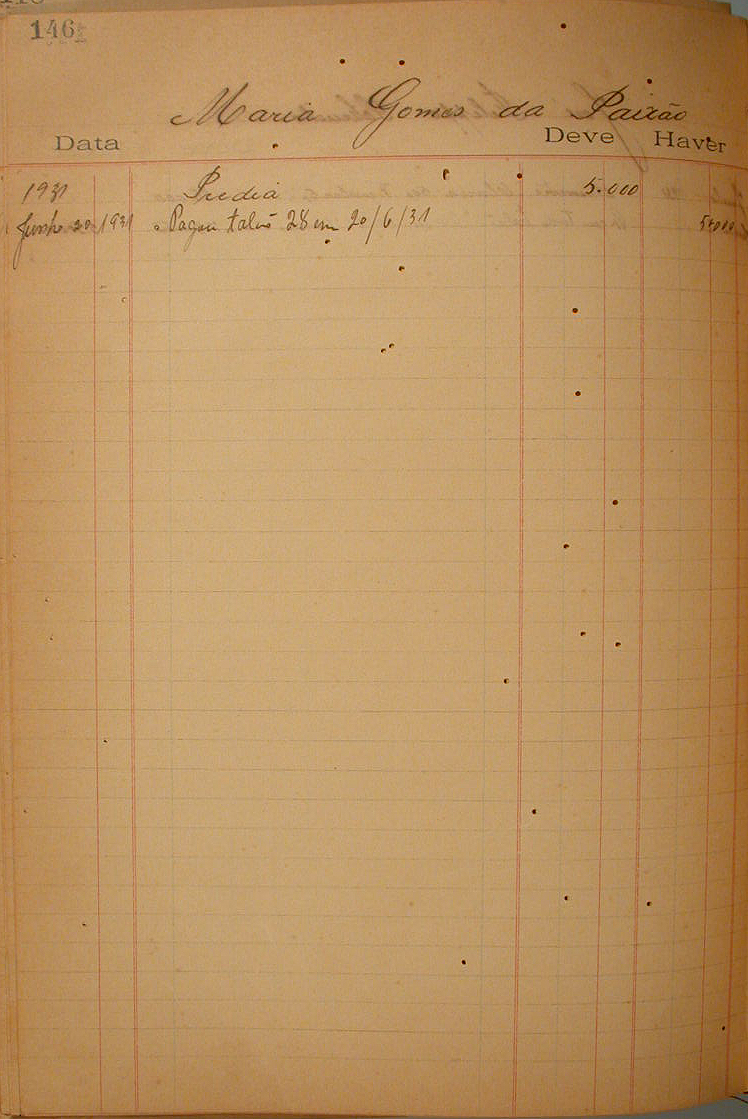 146
Maria Gomes da Paixão
Data Deve Haver
1931 Predia 5.000
Junho 20 1931 Pagou talão 28 em 20/6/31 5.000